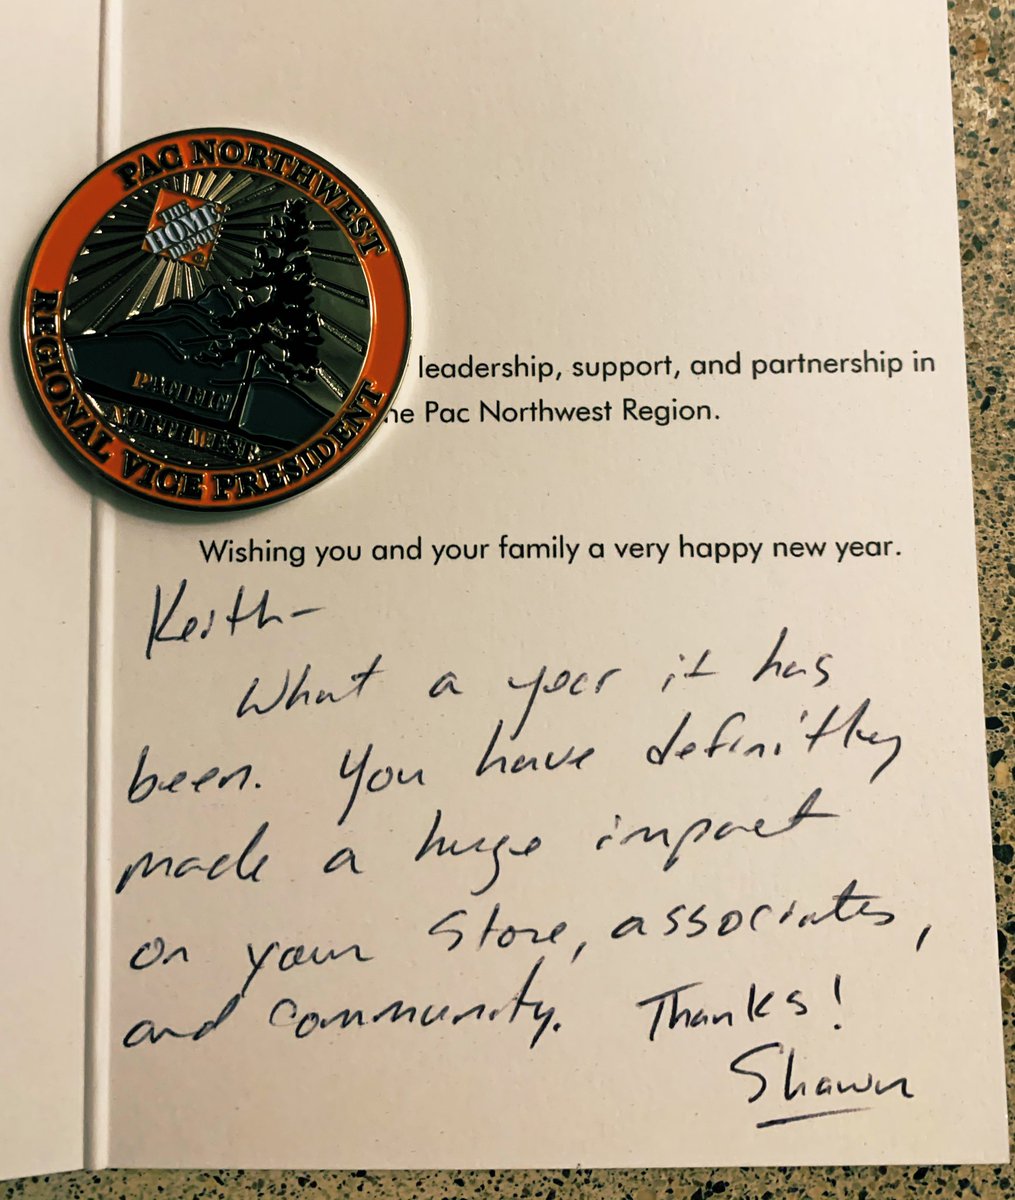 PAC NORTHWEST
THE
HOME
DEPOT
PACIFIC
NORTHWEST
REGIONAL VICE PRESIDENT
leadership, support, and partnership in
he Pac Northwest Region.
Wishing you and your family a very happy new year.
Keith-
What a year it has
been. You have definitley
made a huge impact
on your store, associates,
and community. Thanks!
Shawn